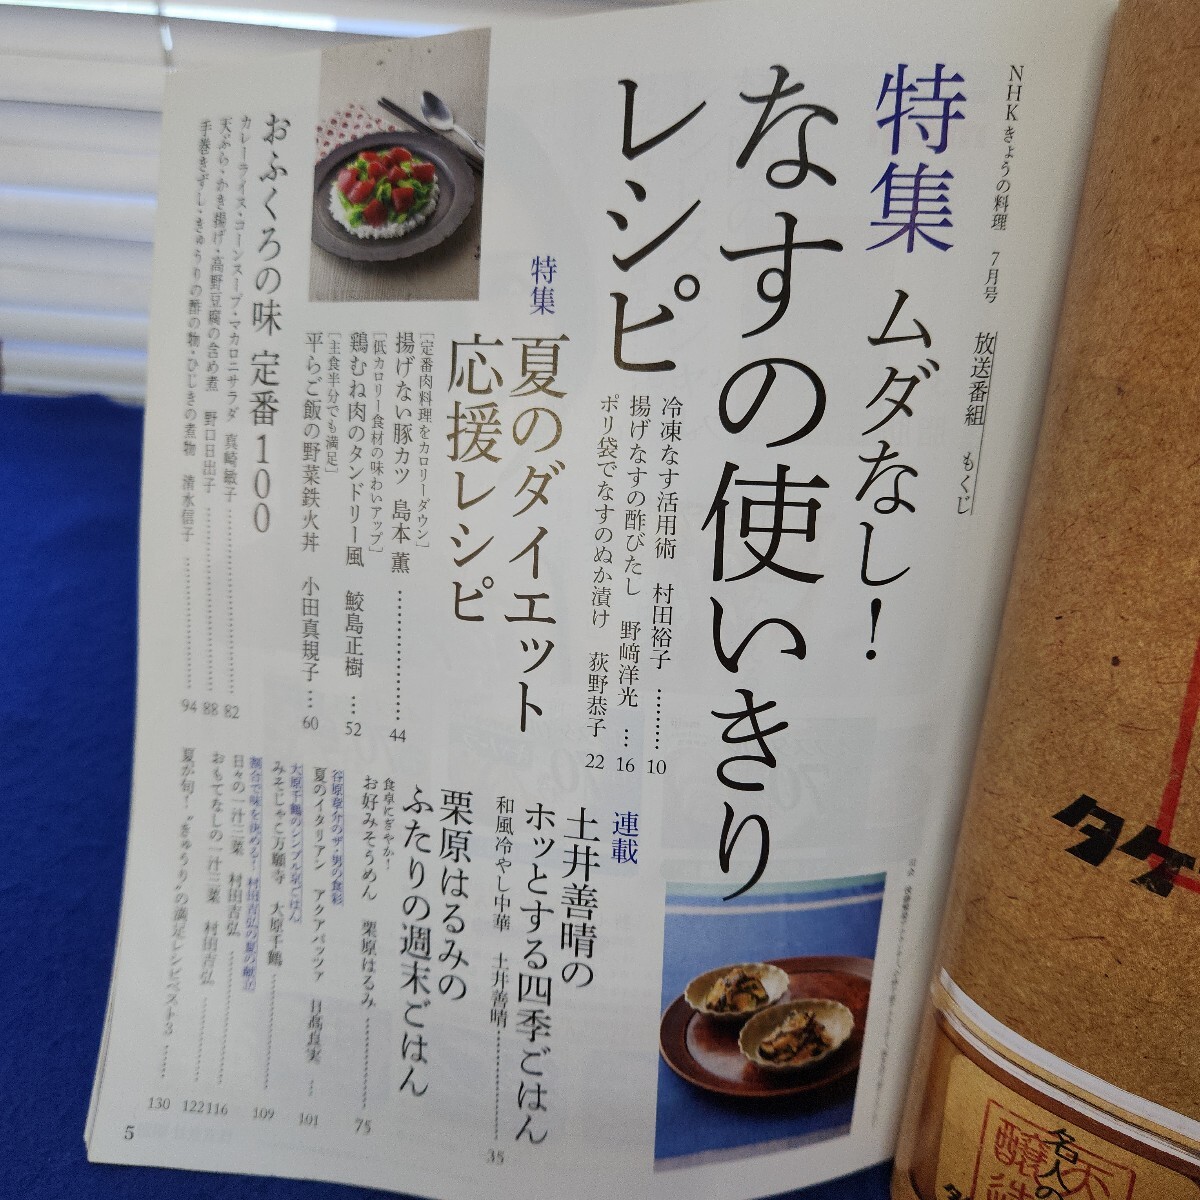 NHK きょうの料理 7月号 放送番組 もくじ
特集 ムダなし!
なすの使いきり
レシピ
冷凍なす活用術 村田裕子 ……… 10
揚げなすの酢びたし 野﨑洋光 … 16
ポリ袋でなすのぬか漬け 荻野恭子 22
特集
夏のダイエット
応援レシピ
[定番肉料理をカロリーダウン]
揚げない豚カツ 島本 薫 ……………… 44
[低カロリー食材の味わいアップ]
鶏むね肉のタンドリー風 鮫島正樹 … 52
[主食半分でも満足]
平らご飯の野菜鉄火丼 小田真規子 … 60
おふくろの味 定番100
カレーライス・コーンスープ・マカロニサラダ 真崎敏子 ……………… 82
天ぷら・かき揚げ・高野豆腐の含め煮 野口日出子 ……………… 88
手巻きずし・きゅうりの酢の物・ひじきの煮物 清水信子 ……………… 94
連載
土井善晴の
ホッとする四季ごはん
和風冷やし中華 土井善晴 ……………… 35
栗原はるみの
ふたりの週末ごはん
食卓にぎやか!
お好みそうめん 栗原はるみ ……………… 75
谷原章介のザ・男の食彩
夏のイタリアン アクアパッツァ 日髙良実 … 101
大原千鶴のシンプル京ごはん
みそじゃこ万願寺 大原千鶴 ……………… 109
割合で味を決める! 村田吉弘の夏の献立
日々の一汁三菜 村田吉弘 ……………… 116
おもてなしの一汁三菜 村田吉弘 ……………… 122
夏が旬! “きゅうり”の満足レシピベスト3 … 130
5
タケ
名人の
醸造